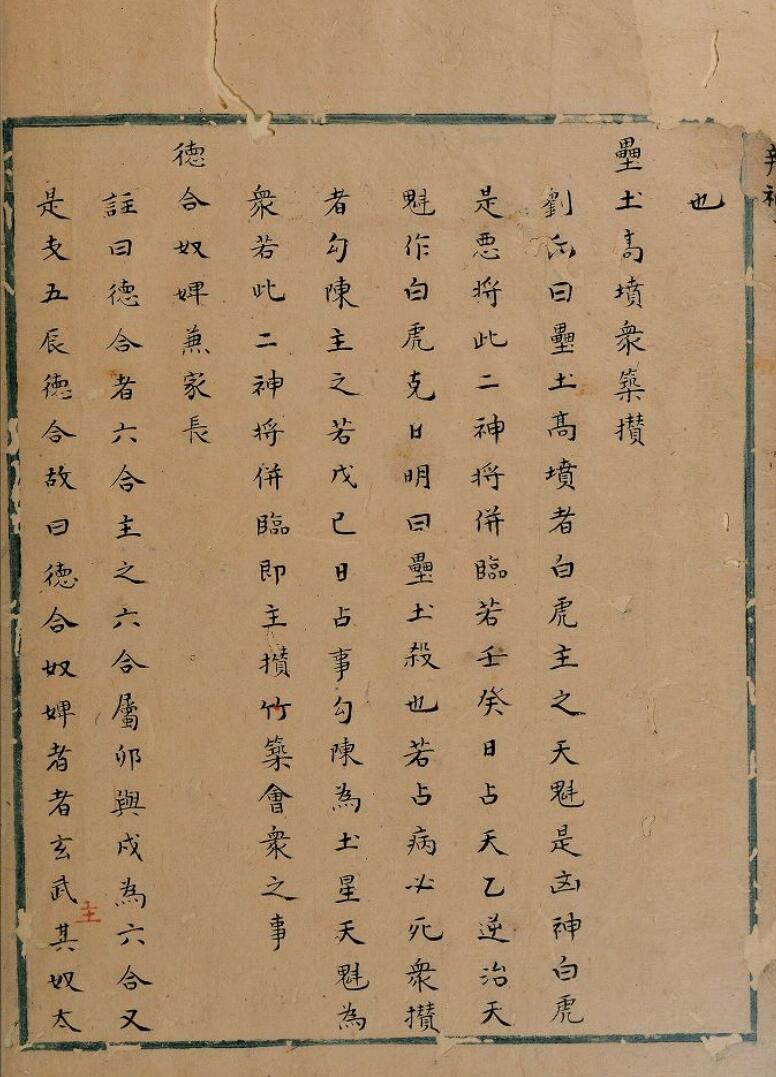 也
壘土高墳衆築攅
劉氏曰壘土髙墳者白虎主之天魁是凶神白虎
是悪将此二神将併臨若壬癸日占天乙逆治天
魁作白虎克日明曰壘土殺也若占病必死衆攅
者勾陳主之若戊己日占事勾陳為土星天魁為
衆若此二神将併臨即主攅竹築會衆之事
德合奴婢兼家長
註曰德合者六合主之六合屬卯與戌為六合又
是支五辰德合故曰德合奴婢者者玄武主其奴太